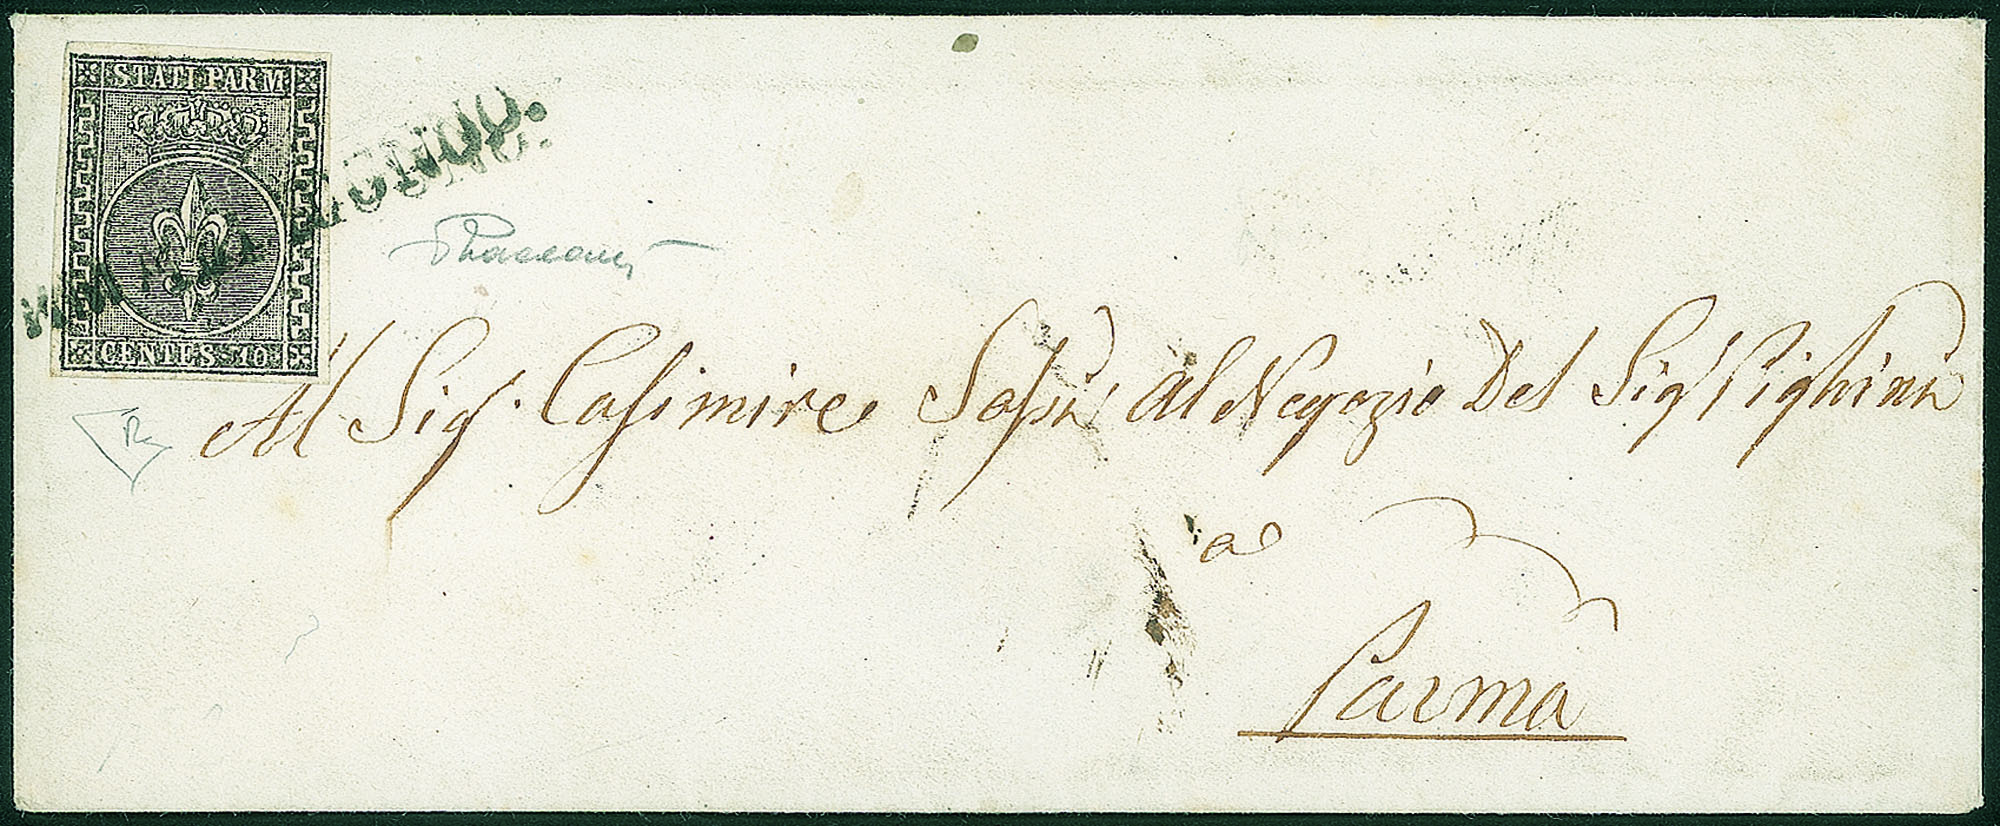 STATI PARM
CENTES 10
Al Sig.r Casimiro al Negozio Del Sig.r Pighini
a
Parma